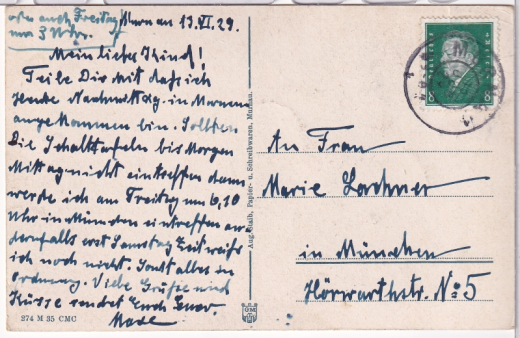 oder auch Freitag
um 3 Uhr.
Murnau 13.VI.29.
Mein liebes Kind!
Teile Dir mit daß ich
Heute Nachmittag in Murnau
angekommen bin. Sollten
Die Schalttafeln bis Morgen
Mittag nicht eintreffen dann
werde ich am Freitag um 6,10
Uhr in München eintreffen an
dernfalls erst Samstag Zeit weiß
ich noch nicht. Sonst alles in
Ordnung. Viele Grüße und
Küsse sendet Euch Euer.
274 M 35 CMC
Aug. Staib, Papier- u. Schreibwaren, Murnau.
An Frau
Marie Lachner
in München
Hörwarthstr. No 5